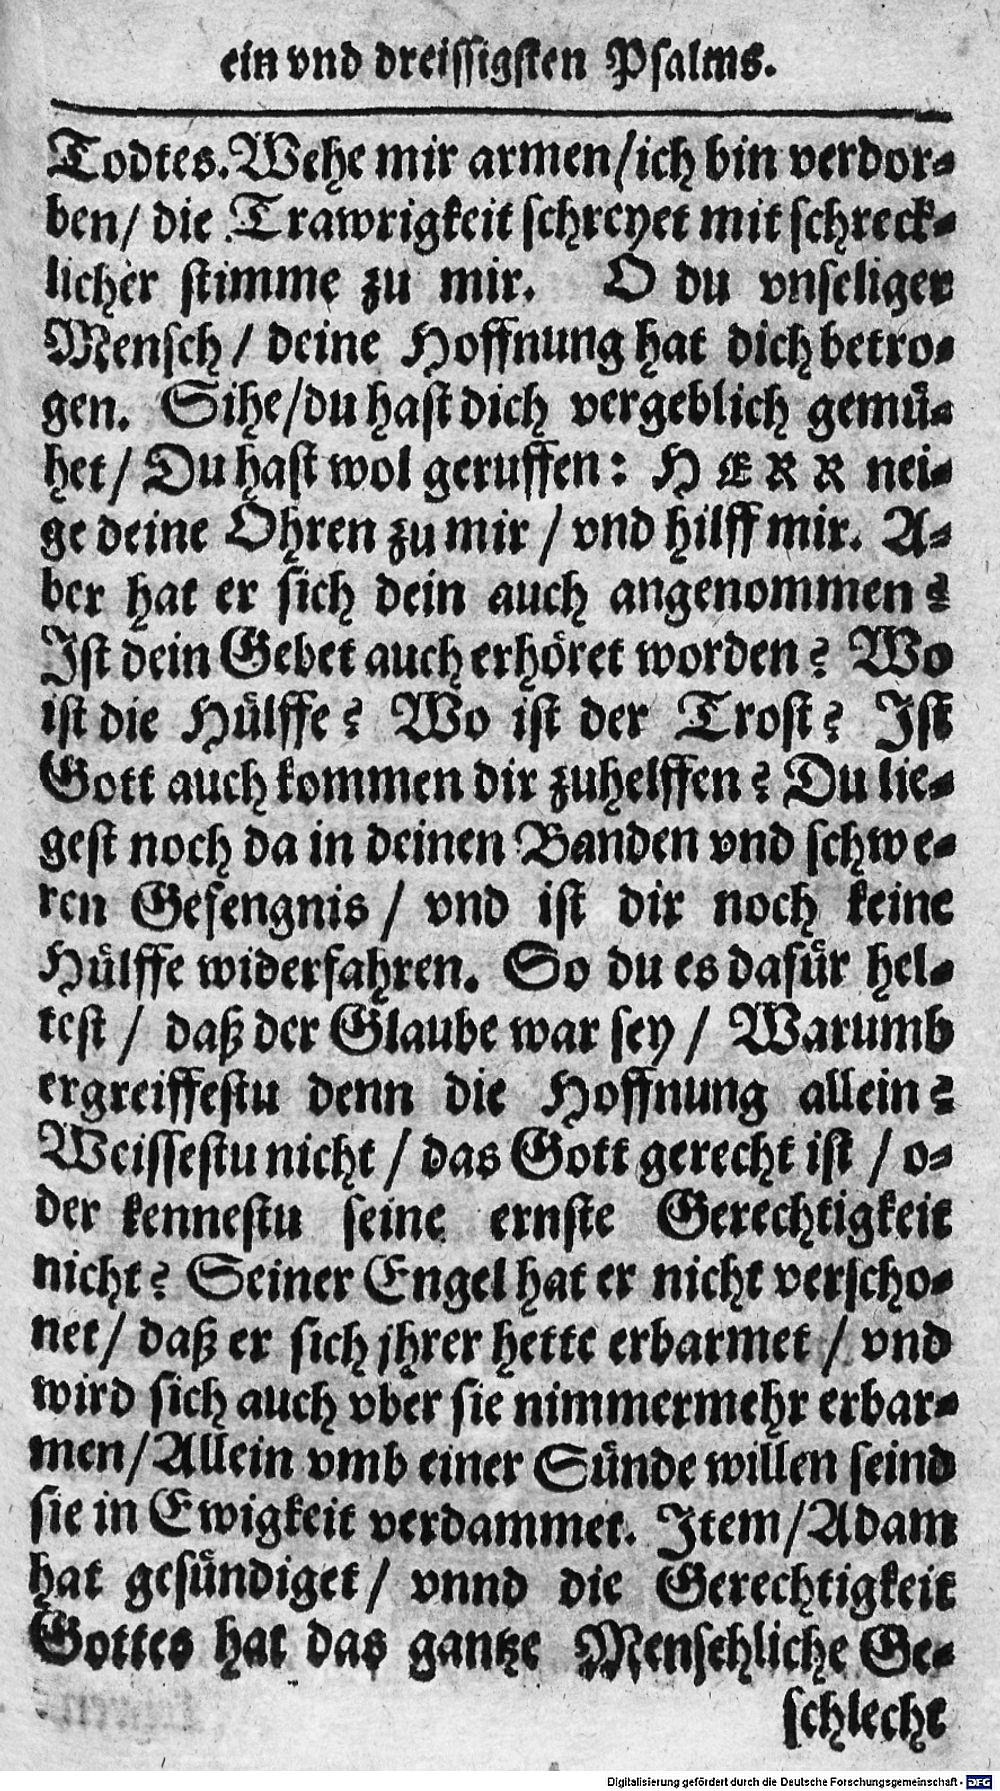 ein vnd dreissigsten Psalms.
Todtes. Wehe mir armen/ich bin verdor-
ben/ die Trawrigkeit schreyet mit schreck-
licher stimme zu mir. O du vnseliger
Mensch / deine Hoffnung hat dich betro-
gen. Sihe/du hast dich vergeblich gemü-
het/ Du hast wol geruffen: HERR nei-
ge deine Ohren zu mir / vnd hilff mir. A-
ber hat er sich dein auch angenommen?
Ist dein Gebet auch erhöret worden? Wo
ist die Hülffe? Wo ist der Trost? Ist
Gott auch kommen dir zuhelffen? Du lie-
gest noch da in deinen Banden vnd schwe-
ren Gefengnis / vnd ist dir noch keine
Hülffe widerfahren. So du es dafür hel-
test / daß der Glaube war sey / Warumb
ergreiffestu denn die Hoffnung allein?
Weissestu nicht / das Gott gerecht ist / o-
der kennestu seine ernste Gerechtigkeit
nicht? Seiner Engel hat er nicht verscho-
net/ daß er sich jhrer hette erbarmet / vnd
wird sich auch vber sie nimmermehr erbar-
men/Allein vmb einer Sünde willen seind
sie in Ewigkeit verdammet. Item/Adam
hat gesündiget/ vnnd die Gerechtigkeit
Gottes hat das gantze Menschliche Ge-
schlecht
Digitalisierung gefördert durch die Deutsche Forschungsgemeinschaft - DFG